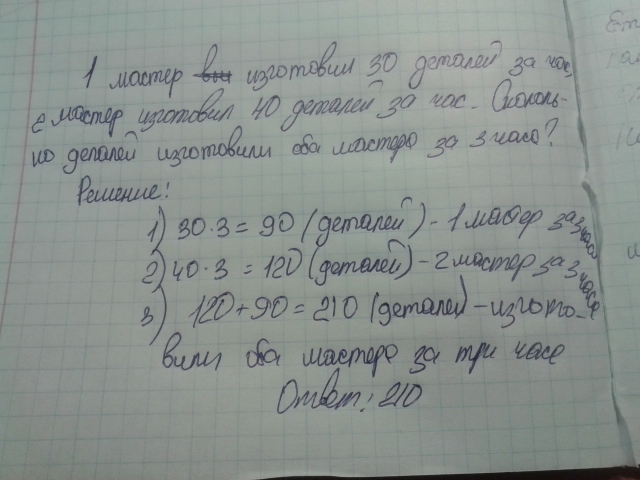 1 мастер вы изготовил 30 деталей за час,
2 мастер изготовил 40 деталей за час. Сколь-
ко деталей изготовили оба мастера за 3 часа?
Решение:
1) 30·3=90 (деталей) - 1 мастер за 3 часа
2) 40·3=120 (деталей) - 2 мастер за 3 часа
3) 120+90=210 (деталей) - изгото-
вили оба мастера за три часа
Ответ: 210